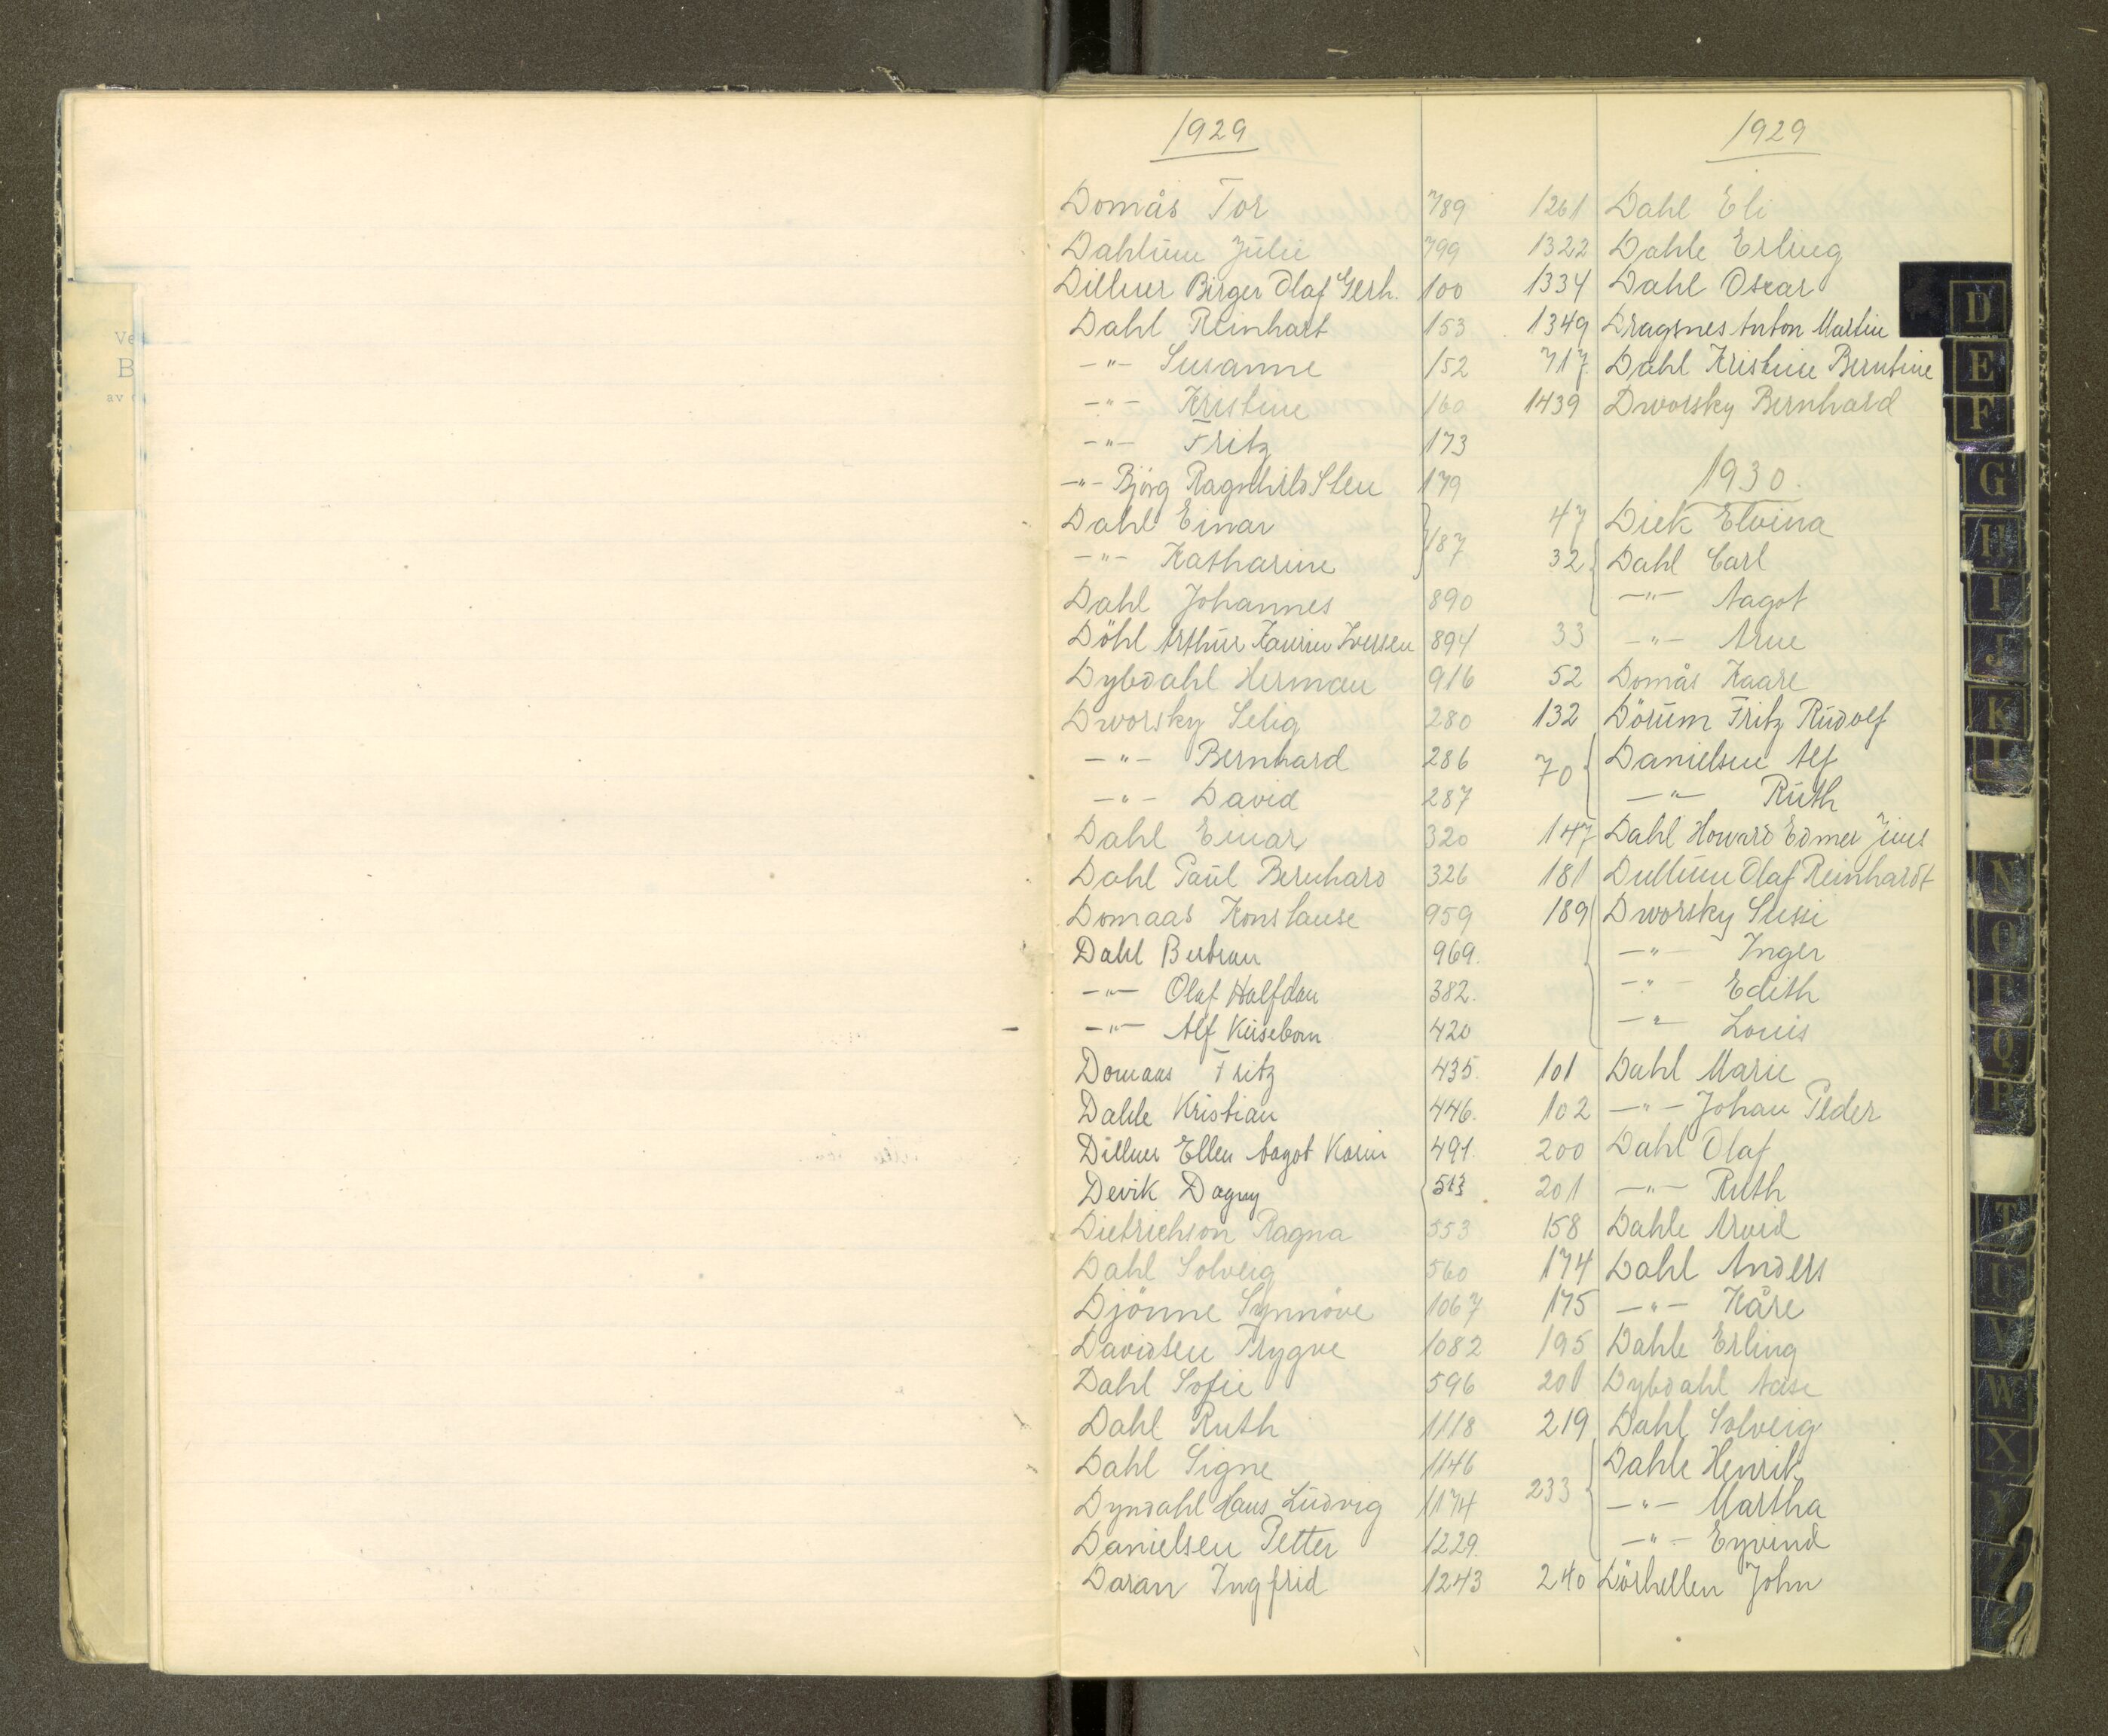 1929
Domås Tor 789
Dahlum Julie 799
Dillner Birger Olaf Gerh. 100
Dahl Reinhart 153
—"— Susanne 152
—"— Kristine 160
—"— Fritz 173
—"— Björg Ragnhild Sten 179
Dahl Einar
187
—"— Katharine
Dahl Johannes 890
Döhl Arthur Kaurin Iversen 894
Dybdahl Herman 916
Dworsky Selig 280
—"— Bernhard 286
—"— David 287
Dahl Einar 320
Dahl Paul Bernhard 326
Domaas Konstanse 959
Dahl Bertran 969.
—"— Olaf Halfdan 382.
—"— Alf 420
Domaas Fritz 435.
Dahle Kristian 446.
Dillner Ellen Aagot Karin 491.
Devik Dagny 513
Dietrichson Ragna 553
Dahl Solveig 560
Djönne Synnöve 1067
Davidsen Trygve 1082
Dahl Sofie 596
Dahl Ruth 1118
Dahl Signe 1146
Dyrdahl Hans Ludvig 1174
Danielsen Petter 1229.
Daran Ingfrid 1243
1929
1261 Dahl Eli
1322 Dahle Erling
1334 Dahl Oscar
1349 Dragsnes Anton Martin
717 Dahl Kristine Berntine
1439 Dworsky Bernhard
1930.
47 Diek Elvina
32 Dahl Carl
—"— Aagot
33 —"— Arne
52 Domås Kaare
132 Dörum Fritz Rudolf
70 Danielsen Alf
—"— Ruth
147 Dahl Howard Edmer Jens
181 Dullum Olaf Reinhardt
189 Dworsky Sussi
—"— Inger
—"— Edith
—"— Louis
101 Dahl Marie
102 —"— Johan Peder
200 Dahl Olaf
201 —"— Ruth
158 Dahle Arvid
174 Dahl Anders
175 —"— Kåre
195 Dahle Erling
201 Dybdahl Aase
219 Dahl Solveig
Dahle Henrik
233 —"— Martha
—"— Eyvind
240 Dörhellen John
D
E
F
G
H
I
J
K
L
N
O
P
Q
R
T
U
V
W
X
Y
Z
Ve
B
av